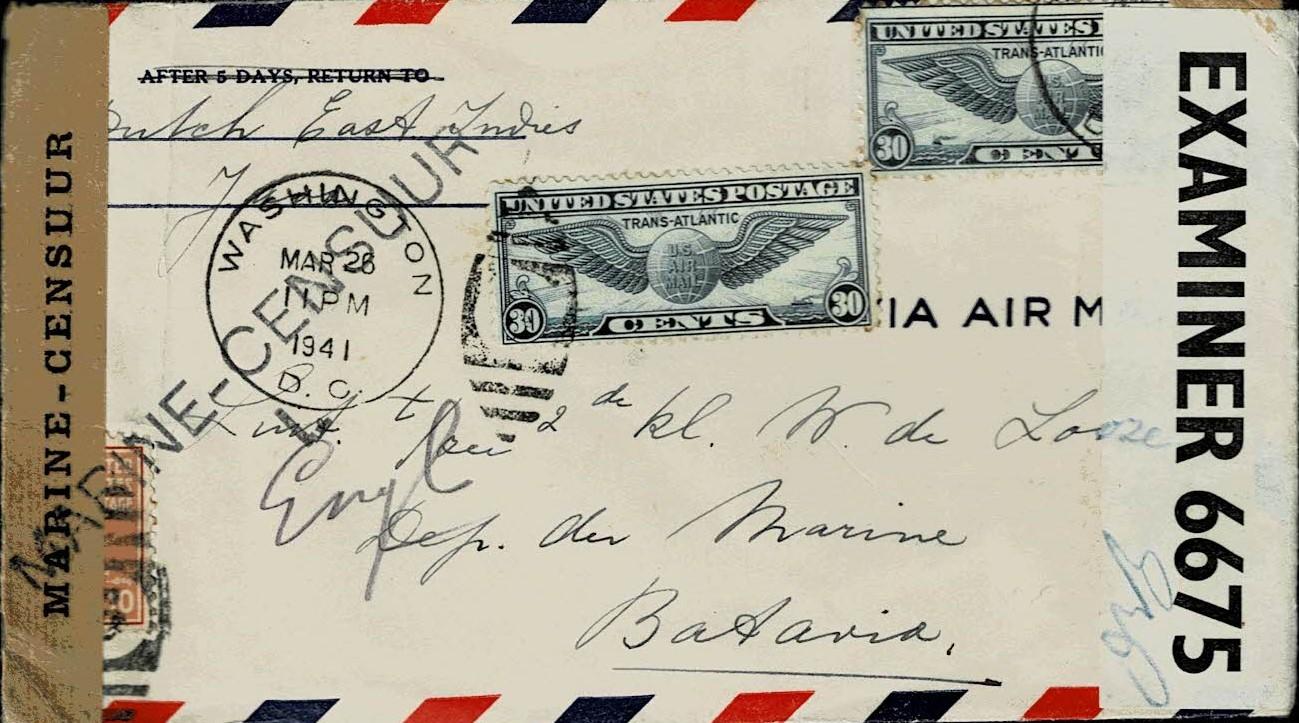 AFTER 5 DAYS, RETURN TO
Dutch East Indies
J
WASHINGTON
MAR 26
11 PM
1941
D. C.
MARINE-CENSUUR
MARINE-CENSUUR
UNITED STATES
TRANS-ATLANTIC
U.S.
AIR
MAIL
30
CENT
UNITED STATES POSTAGE
TRANS-ATLANTIC
U.S.
AIR
MAIL
30 CENTS 30
VIA AIR M
2de kl. W. de Looze
Engl
Dep. der Marine
Batavia.
EXAMINER 6675